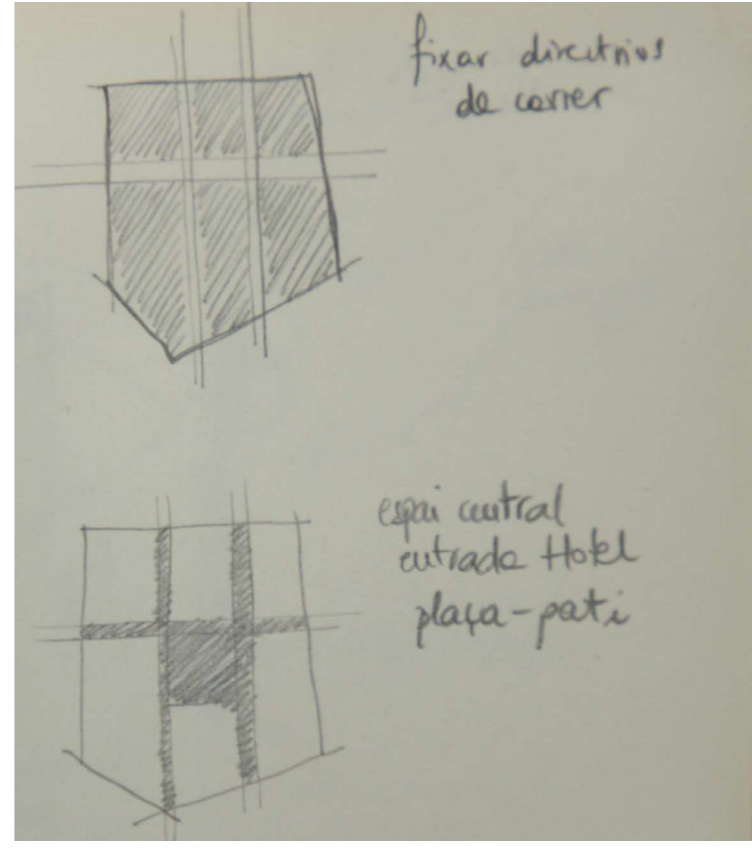 fixar directrius
de carrer
espai central
entrada Hotel
plaça-pati